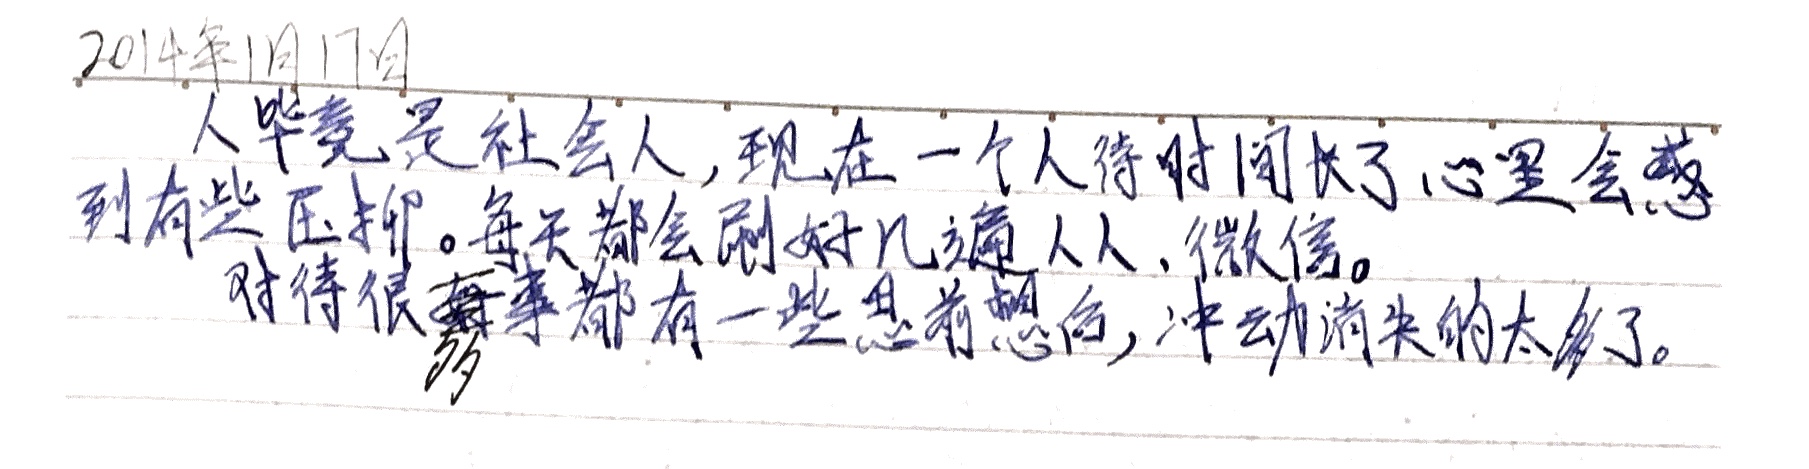 2014年1月17日
人毕竟是社会人，现在一个人待时间长了心里会感
到有些压抑。每天都会刷好几遍人人、微信。
对待很多事都有一些思前想后，冲动消失的太多了。